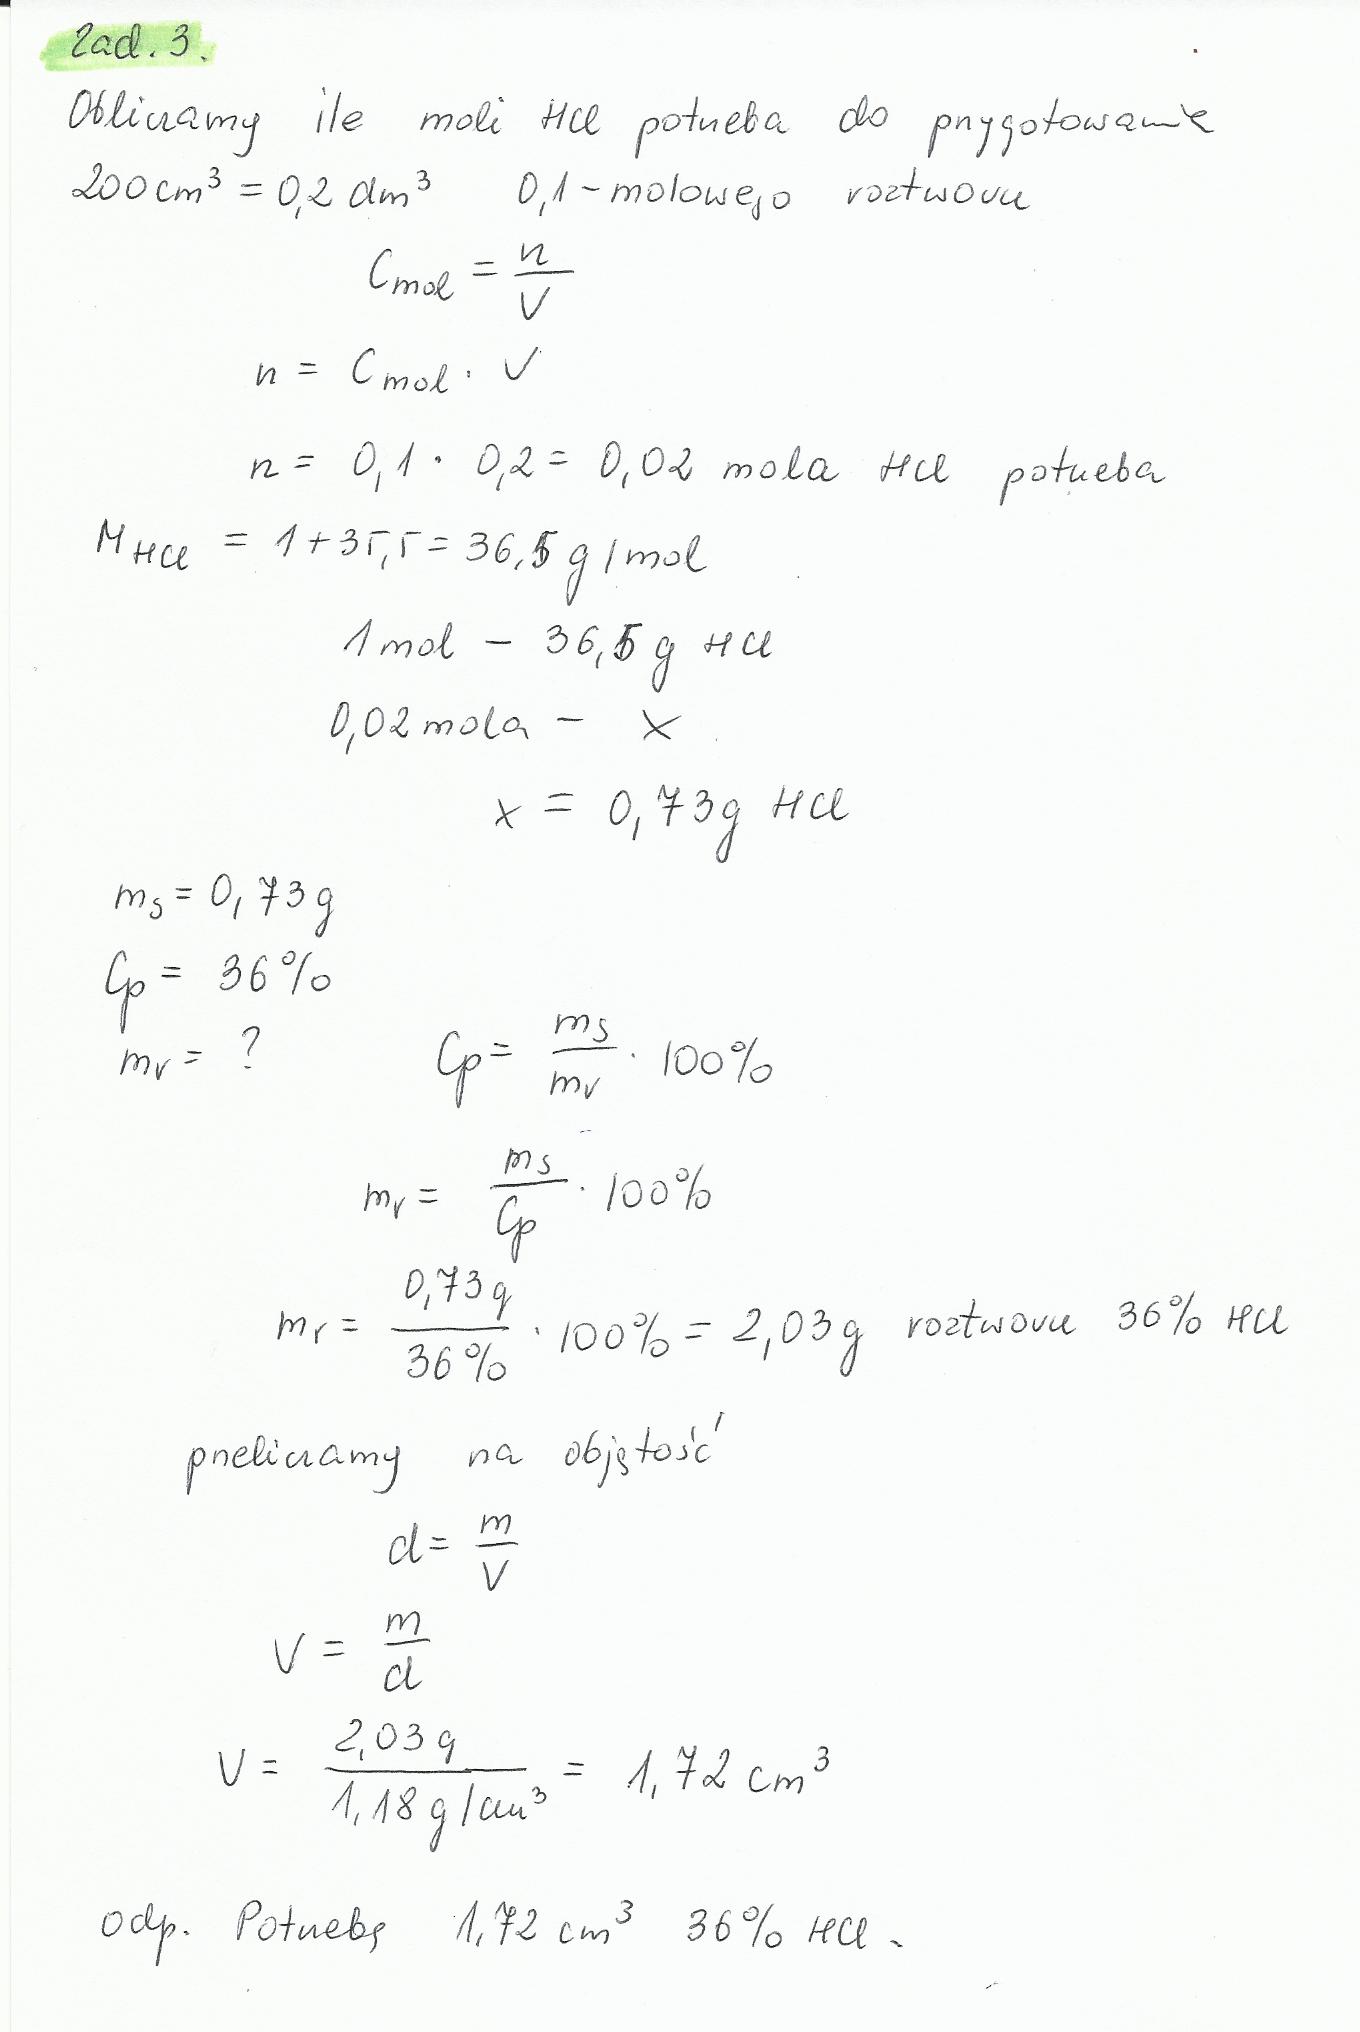 Zad. 3.
Obliczamy ile moli HCl potrzeba do przygotowania
200 cm³ = 0,2 dm³ 0,1-molowego roztworu
Cmol = n/V
n = Cmol · V
n = 0,1 · 0,2 = 0,02 mola HCl potrzeba
MHCl = 1 + 35,5 = 36,5 g/mol
1 mol - 36,5 g HCl
0,02 mola - x
x = 0,73 g HCl
ms = 0,73 g
Cp = 36%
mr = ? Cp = ms/mr · 100%
mr = ms/Cp · 100%
mr = 0,73 g/36% · 100% = 2,03 g roztworu 36% HCl
przeliczamy na objętość
d = m/V
V = m/d
V = 2,03 g/1,18 g/cm³ = 1,72 cm³
odp. Potrzeba 1,72 cm³ 36% HCl.